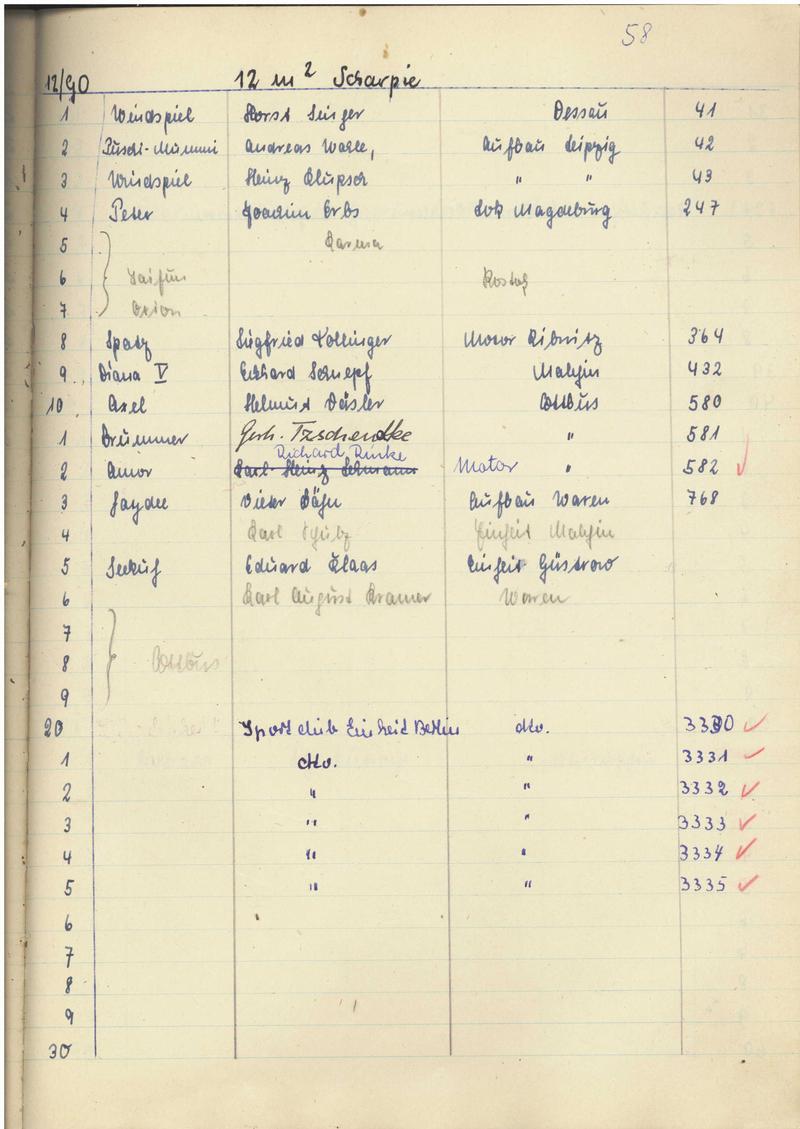 58
12/GO 12 m² Scharpie
1 Windspiel Horst Singer Dessau 41
2 Puschi-Mummi Andreas Aufbau Leipzig 42
3 Windspiel Heinz Klupsch " " 43
4 Peter Joachim Erbs Lok Magdeburg 247
5
6 Taifun Rostock
7 Orion
8 Spatz Siegfried Kollinger Motor Ribnitz 364
9 Diana V Eckhard Schnepf Malchin 432
10 Axel Helmut Cottbus 580
1 Brummer Gerh. Tzschentke " 581
Richard Rinke
2 Amor Karl-Heinz Lehmann Motor " 582 ✓
3 Haydee Dieter Dähn Aufbau Waren 768
4 Karl Schulz Einheit Malchin
5 Seekuh Eduard Klaas Einheit Güstrow
6 Karl August Kramer Waren
7
8 Cottbus
9
20 Sportclub Einheit Berlin dto. 3330 ✓
1 dto. " 3331 ✓
2 " " 3332 ✓
3 " " 3333 ✓
4 " " 3334 ✓
5 " " 3335 ✓
6
7
8
9
30